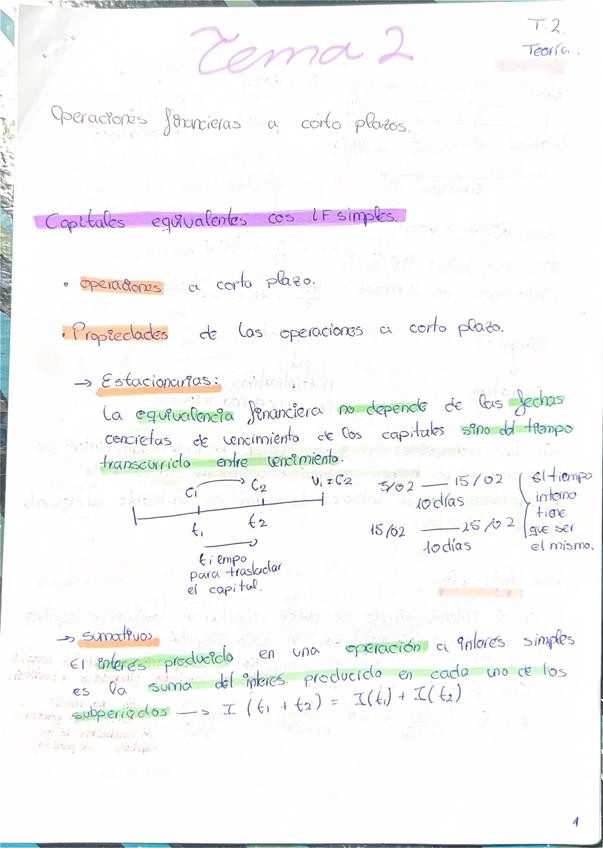 T.2.
Teoría.
Tema 2
Operaciones financieras a corto plazos.
Capitales equivalentes cos LF simples.
• operaciones a corto plazo.
• Propiedades de las operaciones a corto plazo.
→ Estacionarias:
La equivalencia financiera no depende de las fechas
concretas de vencimiento de los capitales sino del tiempo
transcurrido entre vencimiento.
C1 C2 V1 = C2
t1 t2
tiempo
para trasladar
el capital.
5/02 — 15/02
10 días
15/02 — 25/02
10 días
El tiempo
interno
tiene
que ser
el mismo.
→ sumativos
El interés producido en una operación a interés simples
es la suma del interés producido en cada uno de los
subperiodos → I (t1 + t2) = I(t1) + I(t2)
1